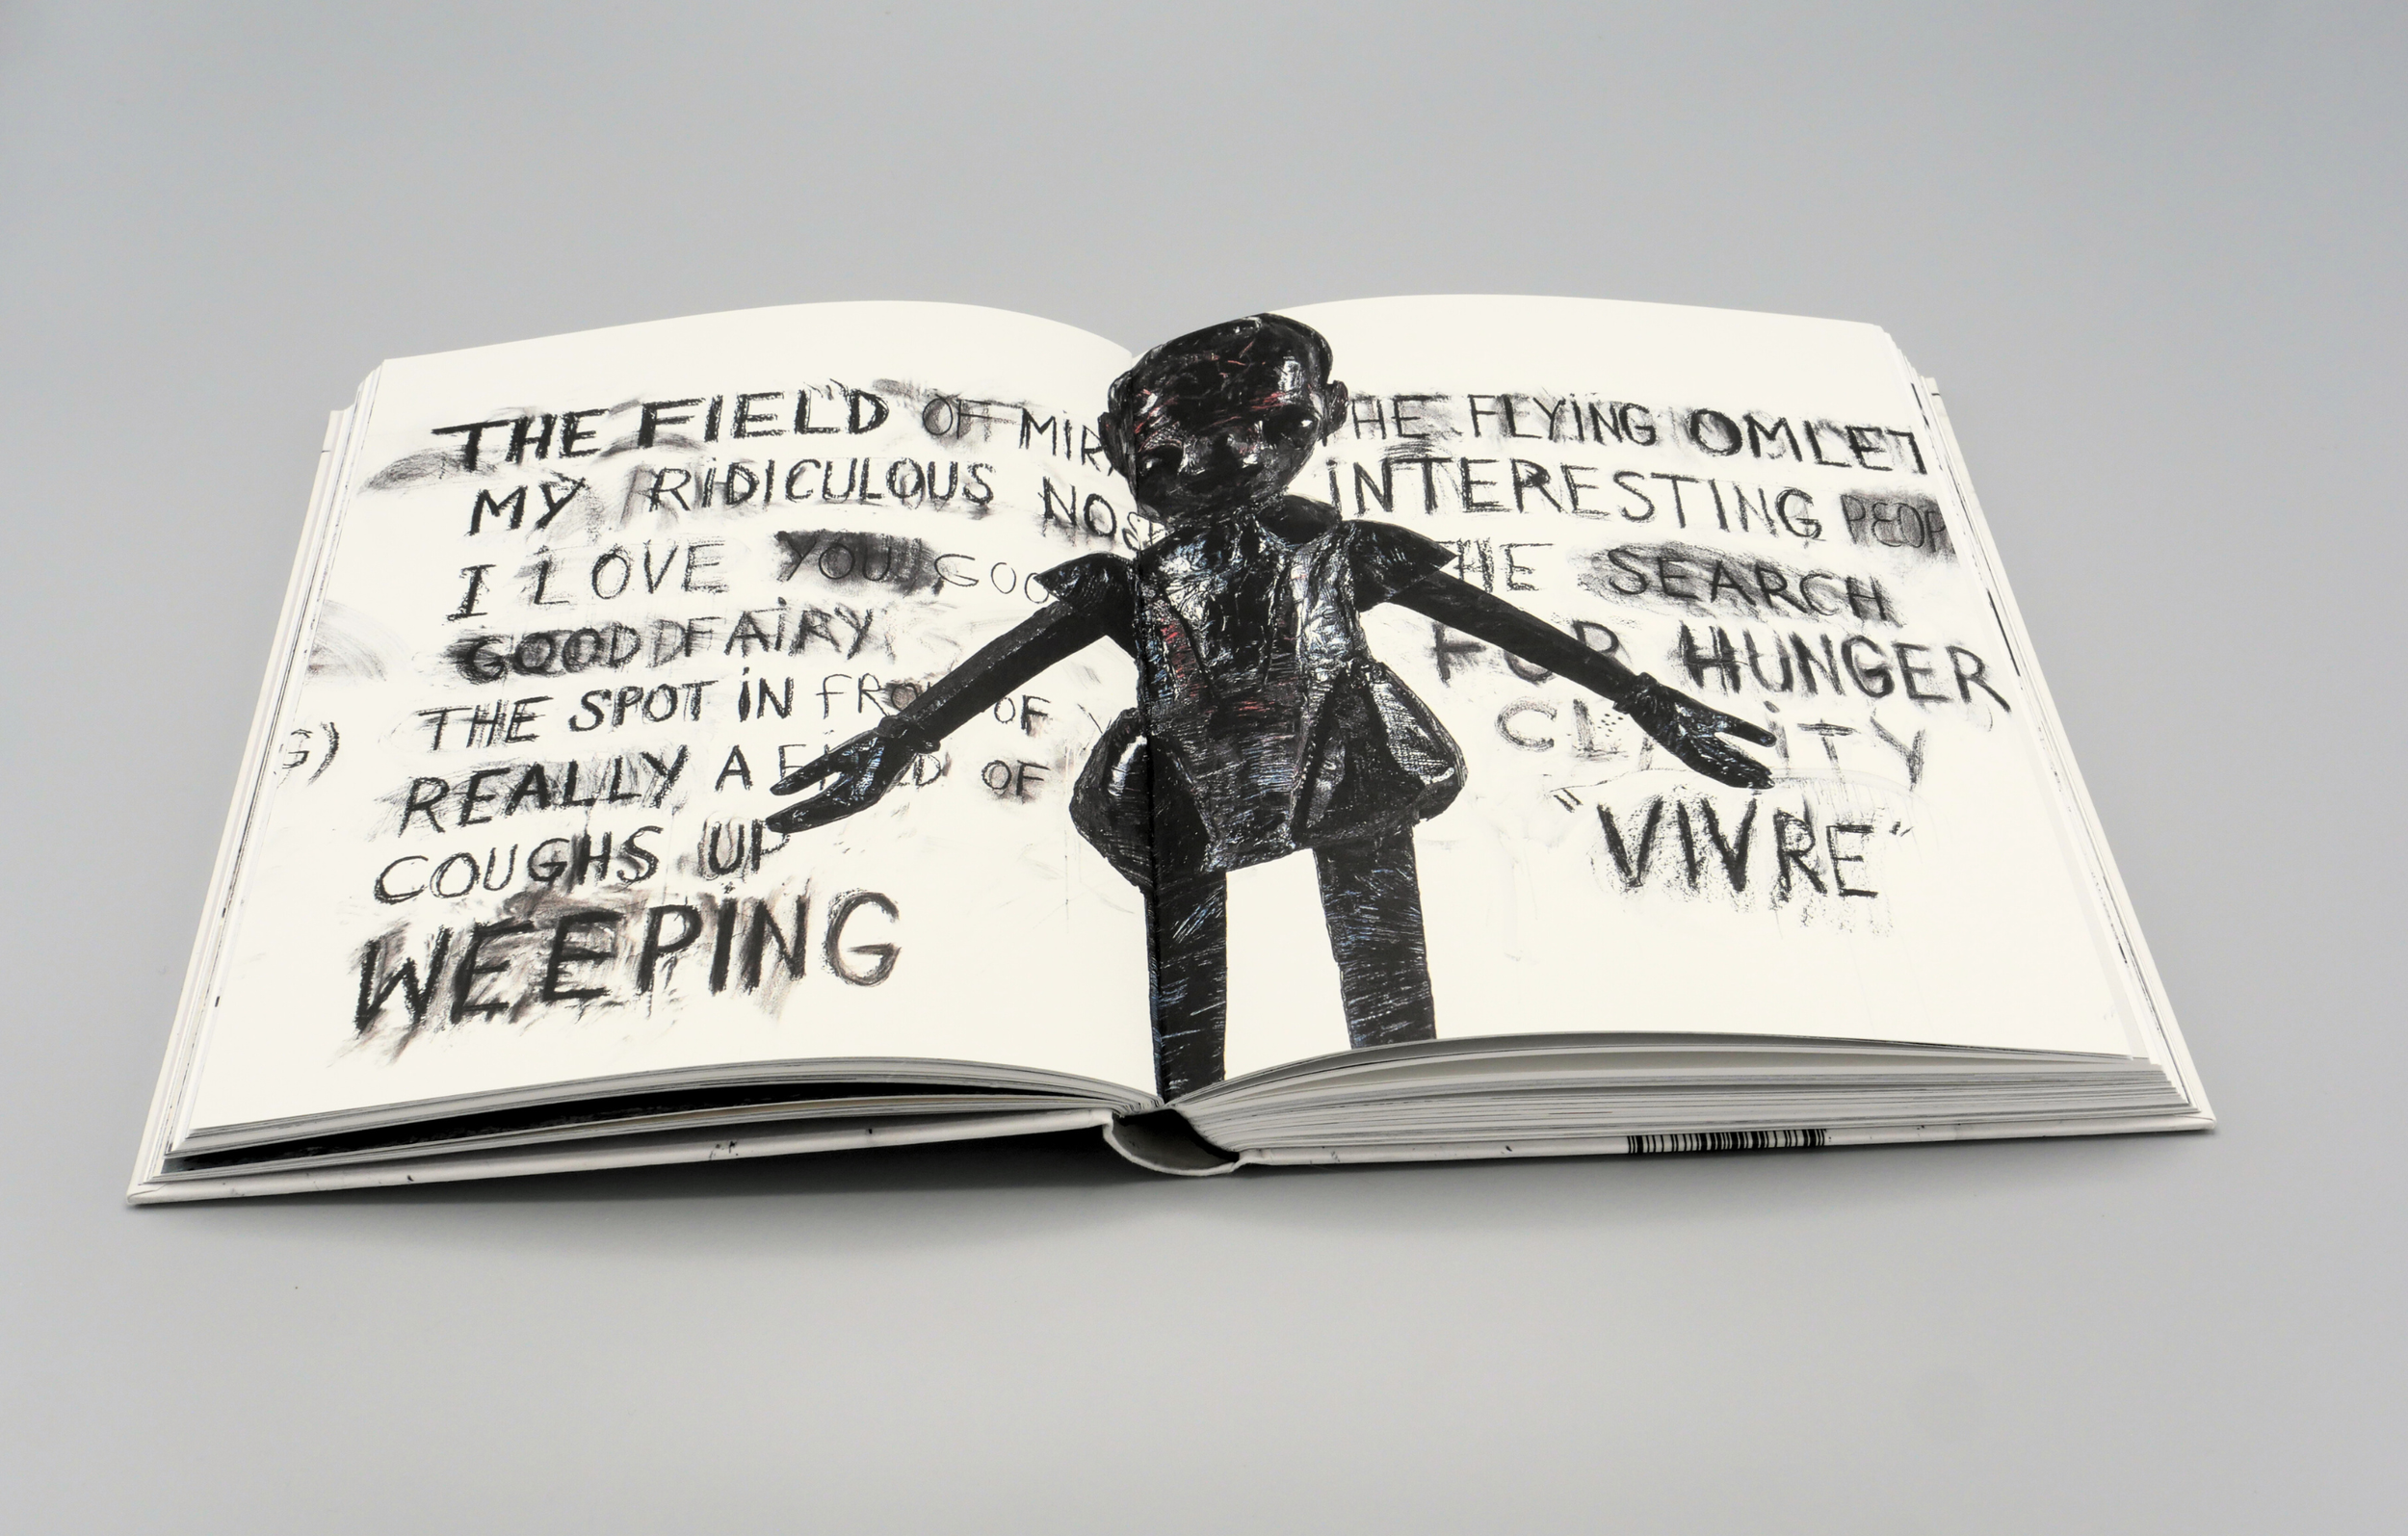 THE FIELD OF MIR
MY RIDICULOUS NOS
I LOVE YOU GOO
GOOD FAIRY
THE SPOT IN FRO OF
REALLY A OF
COUGHS UP
WEEPING
G)
HE FLYING OMLET
INTERESTING PEOP
HE SEARCH
FOR HUNGER
CL ITY
"VIVRE"